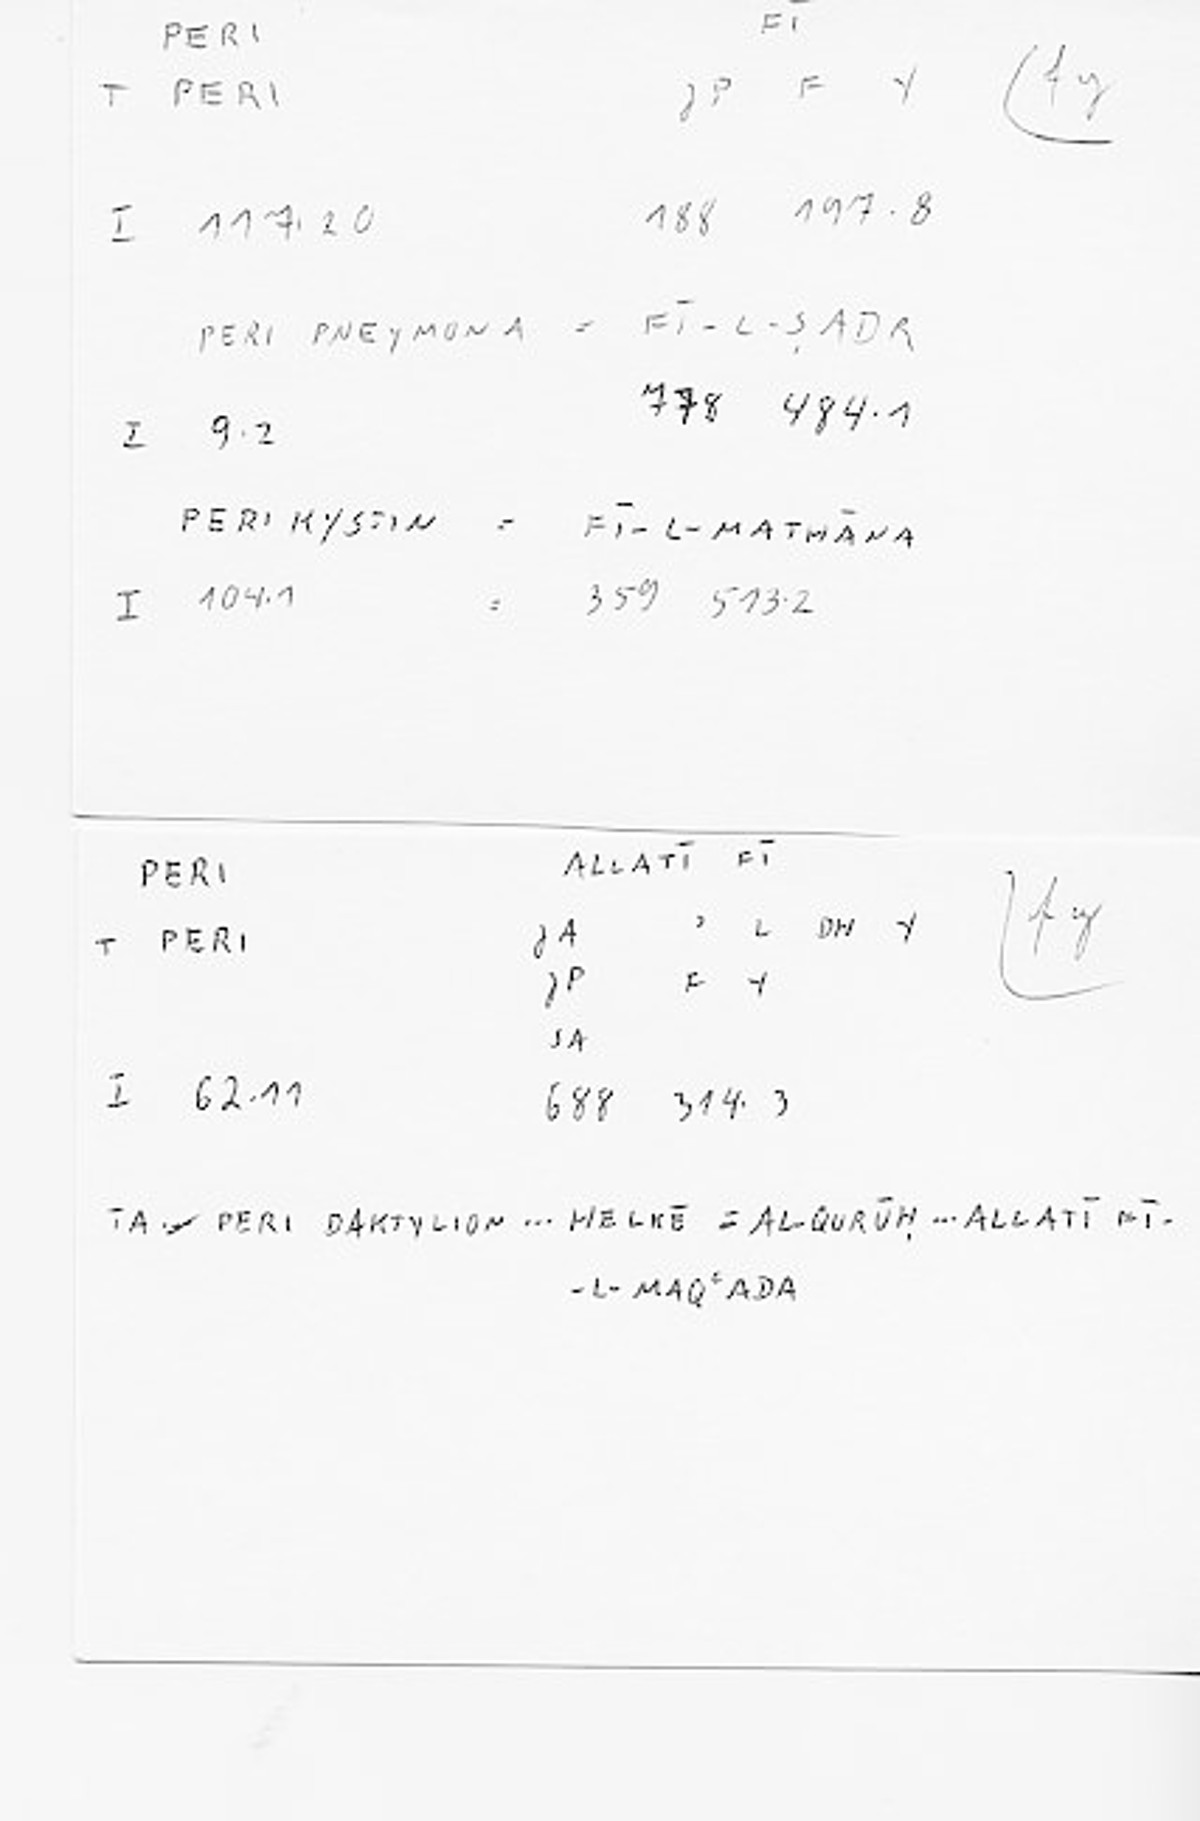 PERI FĪ
T PERI JP F Y fy
I 117.20 188 197.8
PERI PNEYMONA = FĪ-L-ṢADR
778 484.1
I 9.2
PERI KYSTIN = FĪ-L-MATHĀNA
I 104.1 = 359 513.2
PERI ALLATĪ FĪ
T PERI JA ʾ L DH Y fy
JP F Y
SA
I 62.11 688 314.3
TA PERI DAKTYLION ... HELKĒ = AL-QURŪḤ ... ALLATĪ FĪ-
-L-MAQʿADA